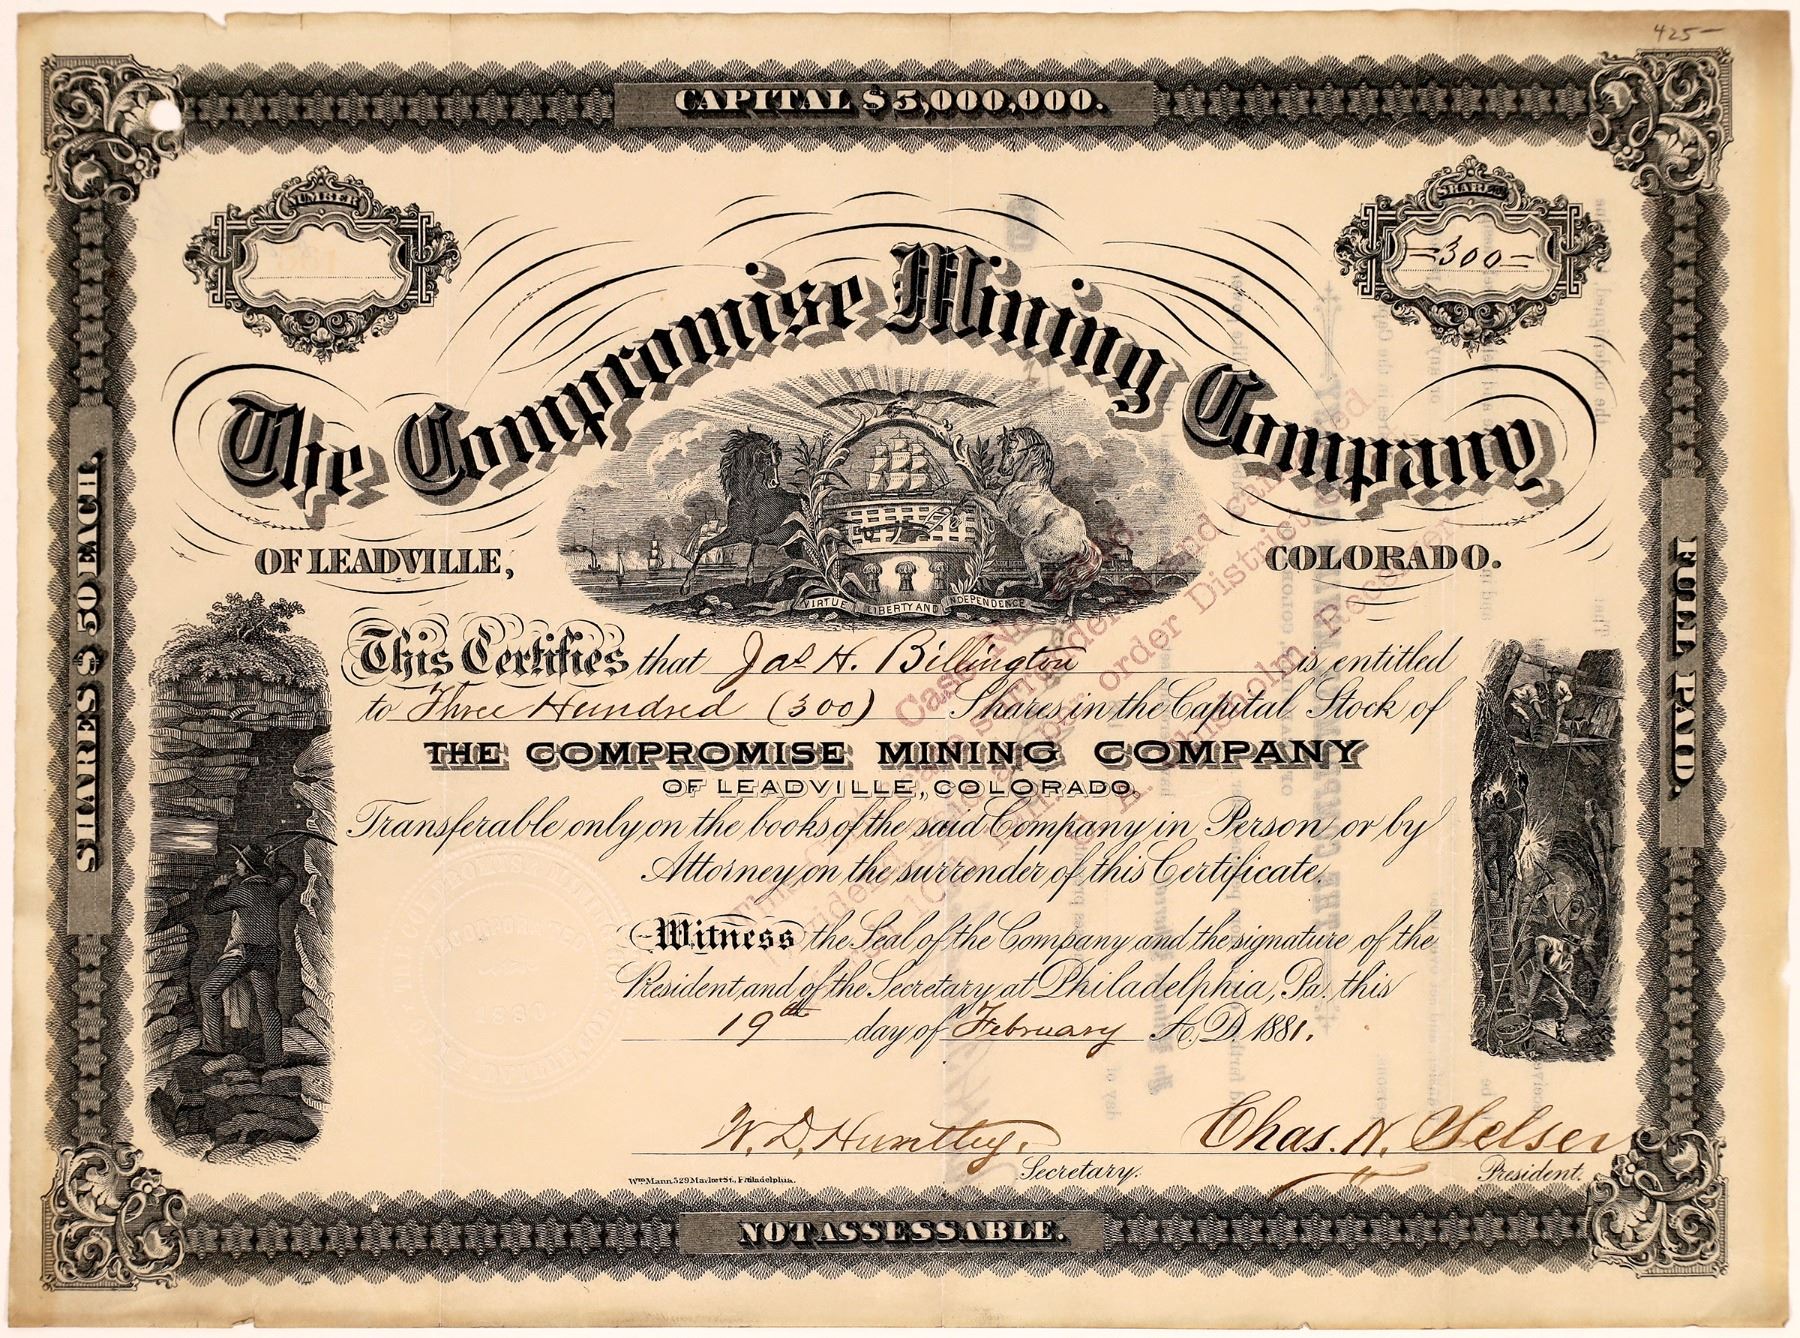 425-
CAPITAL $5,000,000.
NUMBER
SHARES
=300=
The Compromise Mining Company
OF LEADVILLE,
COLORADO.
VIRTUE LIBERTY AND INDEPENDENCE
This Certifies that Jas H. Billington is entitled
to Three Hundred (300) Shares in the Capital Stock of
THE COMPROMISE MINING COMPANY
OF LEADVILLE, COLORADO,
Transferable only on the books of the said Company in Person or by
Attorney on the surrender of this Certificate.
Witness the Seal of the Company and the signature of the
President, and of the Secretary at Philadelphia, Pa. this
19th day of February A.D. 1881.
W. D. Huntley.
Secretary.
Chas. N. Selser
President.
Wm Mann, 529 Market St., Philadelphia.
SHARES $50 EACH.
FULL PAID.
NOT ASSESSABLE.
1880